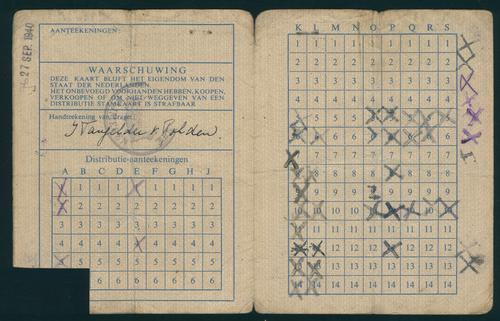 27 SEP. 1940
AANTEEKENINGEN:
WAARSCHUWING
DEZE KAART BLIJFT HET EIGENDOM VAN DEN
STAAT DER NEDERLANDEN.
HET ONBEVOEGD VOORHANDEN HEBBEN, KOOPEN,
VERKOOPEN OF OM NIET WEGGEVEN VAN EEN
DISTRIBUTIE STAMKAART IS STRAFBAAR
Handteekening van drager:
Distributie-aanteekeningen
A B C D E F G H J
1 1 1 1 1 1 1
2 2 2 2 2 2 2 2
3 3 3 3 3 3 3 3 3
4 4 4 4 4 4 4 4
5 5 5 5 5 5 5 5
6 6 6 6 6 6 6
K L M N O P Q R S
1 1 1 1 1 1 1 1 1
2 2 2 2 2 2 2 2 2
3 3 3 3 3 3 3 3 3
4 4 4 4 4 4 4 4 4
5 5 5 5 5 5 5 5
6 6 6 6 6 6 6 6
7 7 7 7 7 7 7 7 7
8 8 8 8 8 8 8
9 9 9 9 9 9 9
10 10 10 10 10 10 10
11 11 11 11 11 11 11 11
12 12 12 12 12 12
13 13 13 13 13 13 13 13
14 14 14 14 14 14 14 14